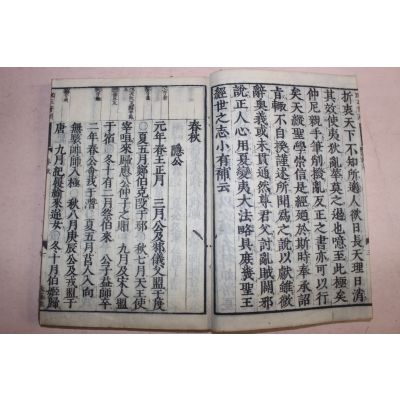 折衷天下不知所適人欲日長天理日消
其效使夷狄亂華莫之遏也噫至此極矣
仲尼親手筆削撥亂反正之書亦可以行
矣天縱聖學崇信是經迺於斯時奉承詔
旨輒不自揆謹述所聞爲之說以獻雖微
辭奧義或未貫通然尊君父討亂賊闢邪
說正人心用夏變夷大法略具庶幾聖王
經世之志小有補云
春秋
隱公
元年春王正月 三月公及邾儀父盟于蔑
夏五月鄭伯克段于鄢 秋七月天王使
宰咺來歸惠公仲子之賵 九月及宋人盟
于宿 冬十有二月祭伯來 公子益師卒
二年春公會戎于潛 夏五月莒人入向
無駭帥師入極 秋八月庚辰公及戎盟于
唐 九月紀裂繻來逆女 冬十月伯姬歸